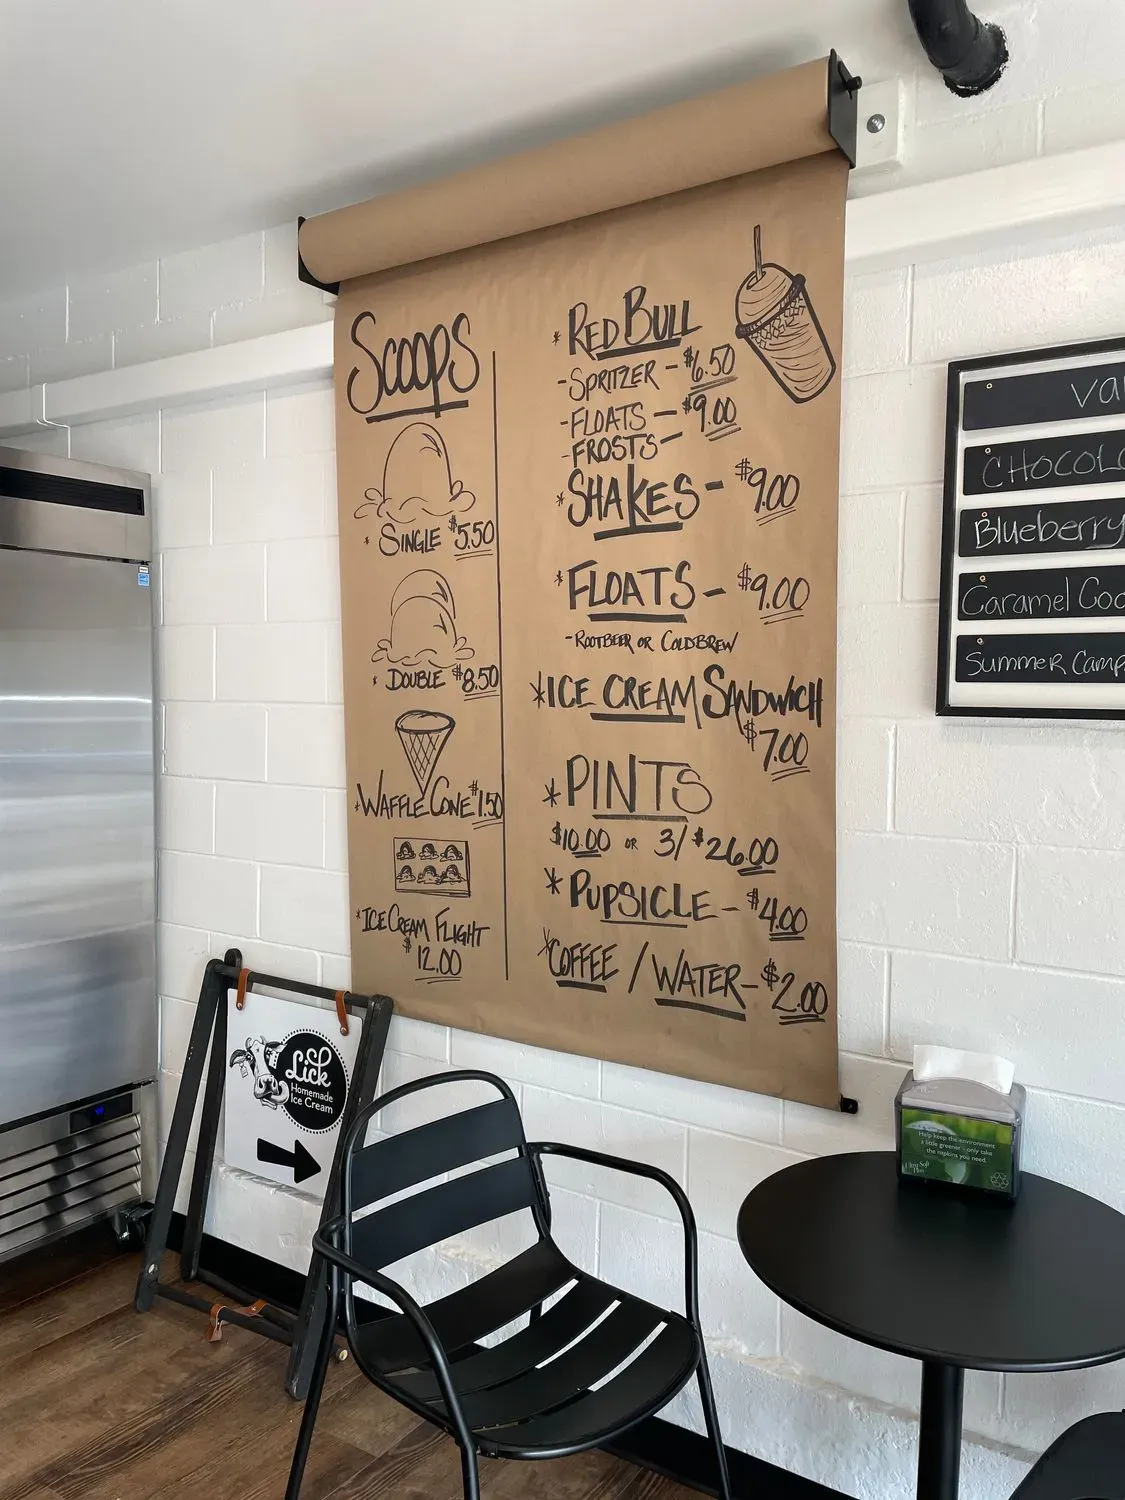 Scoops
* Single $5.50
* Double $8.50
* Waffle Cone $1.50
* Ice Cream Flight
$12.00
* Red Bull
- Spritzer - $6.50
- Floats - $9.00
- Frosts -
* Shakes - $9.00
* Floats - $9.00
- Rootbeer or Coldbrew
* Ice Cream Sandwich
$7.00
* Pints
$10.00 or 3/$26.00
* Pupsicle - $4.00
* Coffee / Water - $2.00
Va
Chocol
Blueberry
Caramel Coo
Summer Camp
Lick
Homemade
Ice Cream
Help keep the environment
a little greener - only take
the napkins you need.